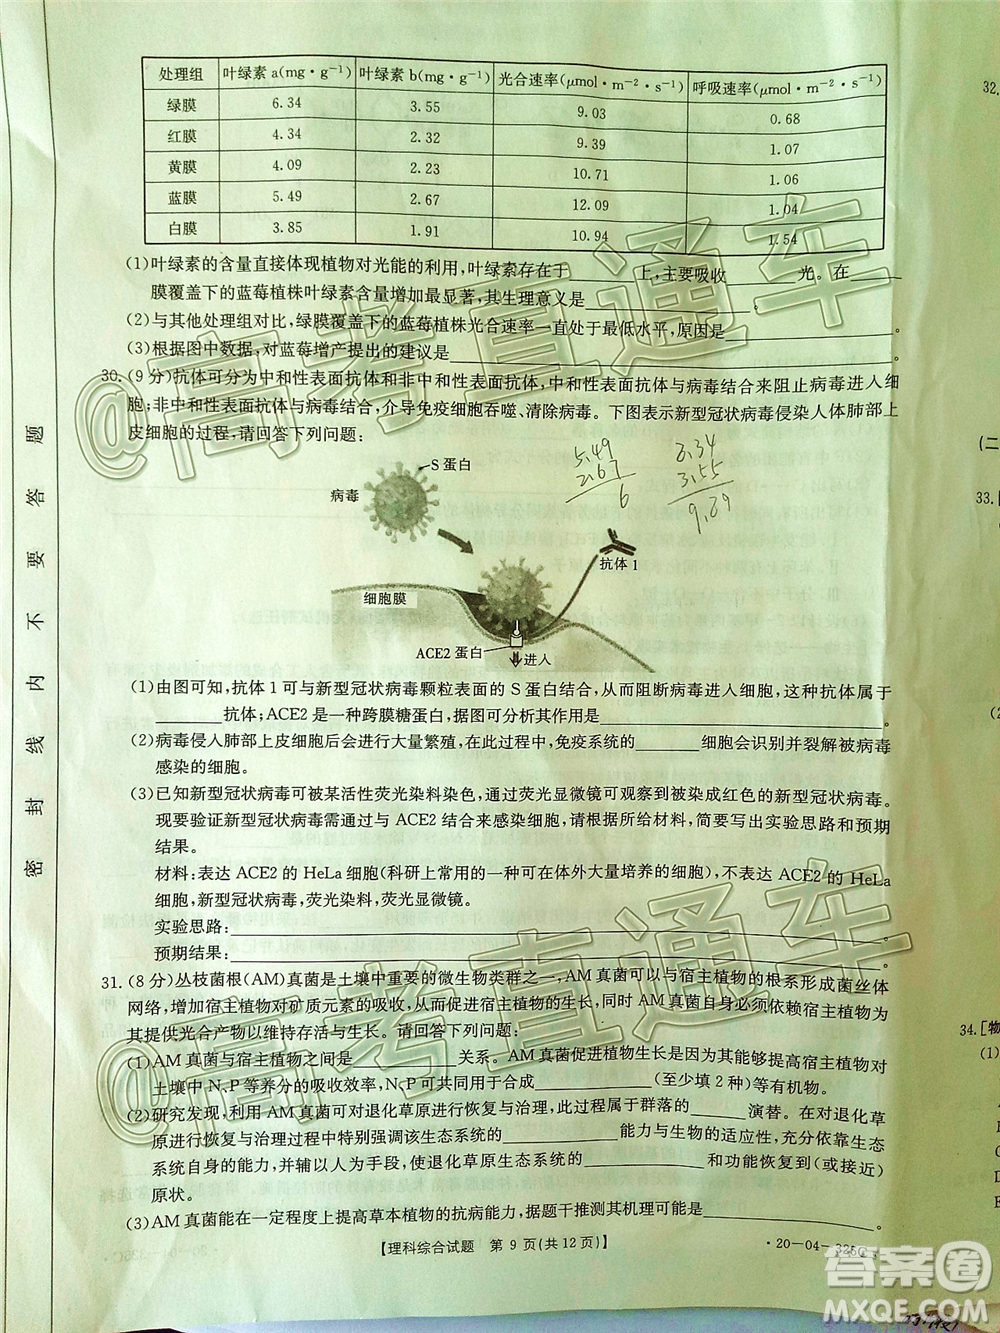 处理组 叶绿素 a(mg·g⁻¹) 叶绿素 b(mg·g⁻¹) 光合速率(μmol·m⁻²·s⁻¹) 呼吸速率(μmol·m⁻²·s⁻¹)
绿膜 6.34 3.55 9.03 0.68
红膜 4.34 2.32 9.39 1.07
黄膜 4.09 2.23 10.71 1.06
蓝膜 5.49 2.67 12.09 1.04
白膜 3.85 1.91 10.94 1.54
(1)叶绿素的含量直接体现植物对光能的利用,叶绿素存在于________上,主要吸收________光。在________
膜覆盖下的蓝莓植株叶绿素含量增加最显著,其生理意义是________。
(2)与其他处理组对比,绿膜覆盖下的蓝莓植株光合速率一直处于最低水平,原因是________。
(3)根据图中数据,对蓝莓增产提出的建议是________。
30.(9分)抗体可分为中和性表面抗体和非中和性表面抗体,中和性表面抗体与病毒结合来阻止病毒进入细
胞;非中和性表面抗体与病毒结合,介导免疫细胞吞噬、清除病毒。下图表示新型冠状病毒侵染人体肺部上
皮细胞的过程,请回答下列问题:
S 蛋白
病毒
5.49
2.67
6
3.55
9.89
抗体 1
细胞膜
ACE2 蛋白
进入
(1)由图可知,抗体 1 可与新型冠状病毒颗粒表面的 S 蛋白结合,从而阻断病毒进入细胞,这种抗体属于
________抗体;ACE2 是一种跨膜糖蛋白,据图可分析其作用是________。
(2)病毒侵入肺部上皮细胞后会进行大量繁殖,在此过程中,免疫系统的________细胞会识别并裂解被病毒
感染的细胞。
(3)已知新型冠状病毒可被某活性荧光染料染色,通过荧光显微镜可观察到被染成红色的新型冠状病毒。
现要验证新型冠状病毒需通过与 ACE2 结合来感染细胞,请根据所给材料,简要写出实验思路和预期
结果。
材料:表达 ACE2 的 HeLa 细胞(科研上常用的一种可在体外大量培养的细胞),不表达 ACE2 的 HeLa
细胞,新型冠状病毒,荧光染料,荧光显微镜。
实验思路:________
预期结果:________
31.(8分)丛枝菌根(AM)真菌是土壤中重要的微生物类群之一,AM 真菌可以与宿主植物的根系形成菌丝体
网络,增加宿主植物对矿质元素的吸收,从而促进宿主植物的生长,同时 AM 真菌自身必须依赖宿主植物为
其提供光合产物以维持存活与生长。请回答下列问题:
(1)AM 真菌与宿主植物之间是________关系。AM 真菌促进植物生长是因为其能够提高宿主植物对
土壤中 N、P 等养分的吸收效率,N、P 可共同用于合成________(至少填 2 种)等有机物。
(2)研究发现,利用 AM 真菌可对退化草原进行恢复与治理,此过程属于群落的________演替。在对退化草
原进行恢复与治理过程中特别强调该生态系统的________能力与生物的适应性,充分依靠生态
系统自身的能力,并辅以人为手段,使退化草原生态系统的________和功能恢复到(或接近)
原状。
(3)AM 真菌能在一定程度上提高草本植物的抗病能力,据题干推测其机理可能是________。
【理科综合试题 第 9 页(共 12 页)】
·20-04-325C·
密 封 线 内 不 要 答 题
32.
(二
33.
34.[物
(1)
@高考直通车
@高考直通车
答案圈
MXQE.COM